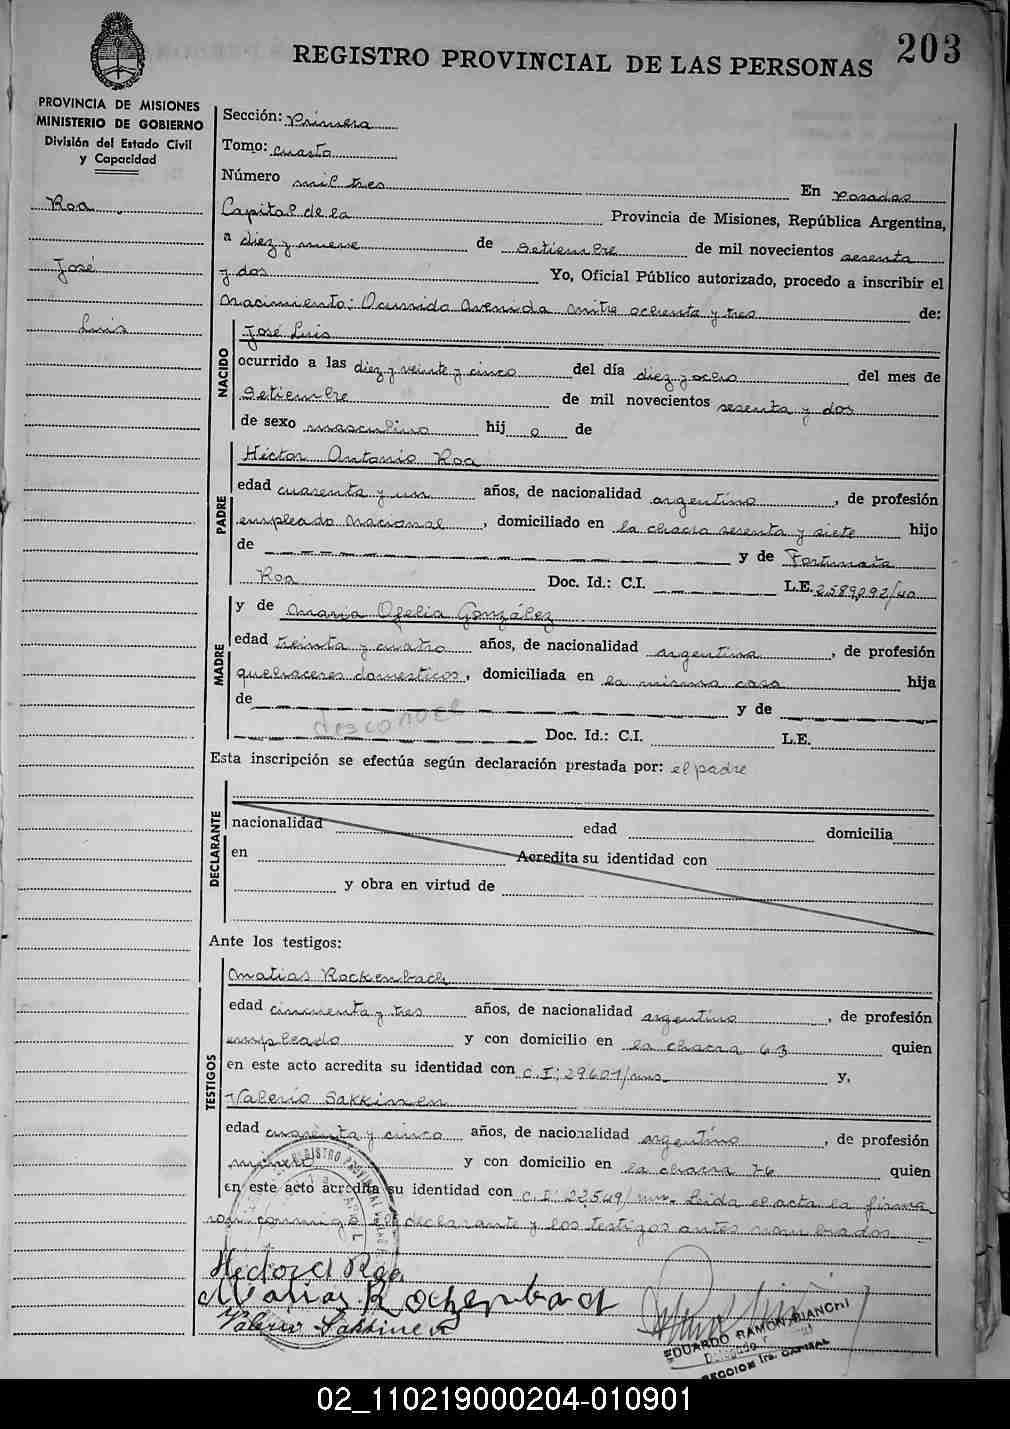 203
REGISTRO PROVINCIAL DE LAS PERSONAS
PROVINCIA DE MISIONES
MINISTERIO DE GOBIERNO
División del Estado Civil
y Capacidad
Roa
José
Luis
Sección: Primera
Tomo: cuarto
Número mil tres En Posadas
Capital de la Provincia de Misiones, República Argentina,
a diez y nueve de Setiembre de mil novecientos sesenta
y dos Yo, Oficial Público autorizado, procedo a inscribir el
Nacimiento: Ocurrido Avenida Mitre ochenta y tres de:
NACIDO
José Luis
ocurrido a las diez y veinte y cinco del día diez y ocho del mes de
Setiembre de mil novecientos sesenta y dos
de sexo masculino hij o de
PADRE
Héctor Antonio Roa
edad cuarenta y un años, de nacionalidad argentino, de profesión
empleado nacional, domiciliado en la chacra sesenta y siete hijo
de y de Fortunata
Roa Doc. Id.: C.I. L.E. 2589292/40
MADRE
y de María Ofelia González
edad treinta y cuatro años, de nacionalidad argentina, de profesión
quehaceres domesticos, domiciliada en la misma casa hija
de y de
desconoce Doc. Id.: C.I. L.E.
Esta inscripción se efectúa según declaración prestada por: el padre
DECLARANTE
nacionalidad edad domicilia
en Acredita su identidad con
y obra en virtud de
Ante los testigos:
TESTIGOS
Matias Rockenbach
edad cincuenta y tres años, de nacionalidad argentino, de profesión
empleado y con domicilio en la chacra 63 quien
en este acto acredita su identidad con C.I: 29601/mns. y,
Valerio Sakkinen
edad cuarenta y cinco años, de nacionalidad argentino, de profesión
minero y con domicilio en la chacra 76 quien
en este acto acredita su identidad con C.I: 22549/mns. Leida el acta la firman
conmigo el declarante y los testigos antes nombrados
Hector A Roa
Matias Rockenbach
Valerio Sakkinen
EDUARDO RAMON BIANCHI
Delegado
SECCION 1ra. CAPITAL
02_110219000204-010901